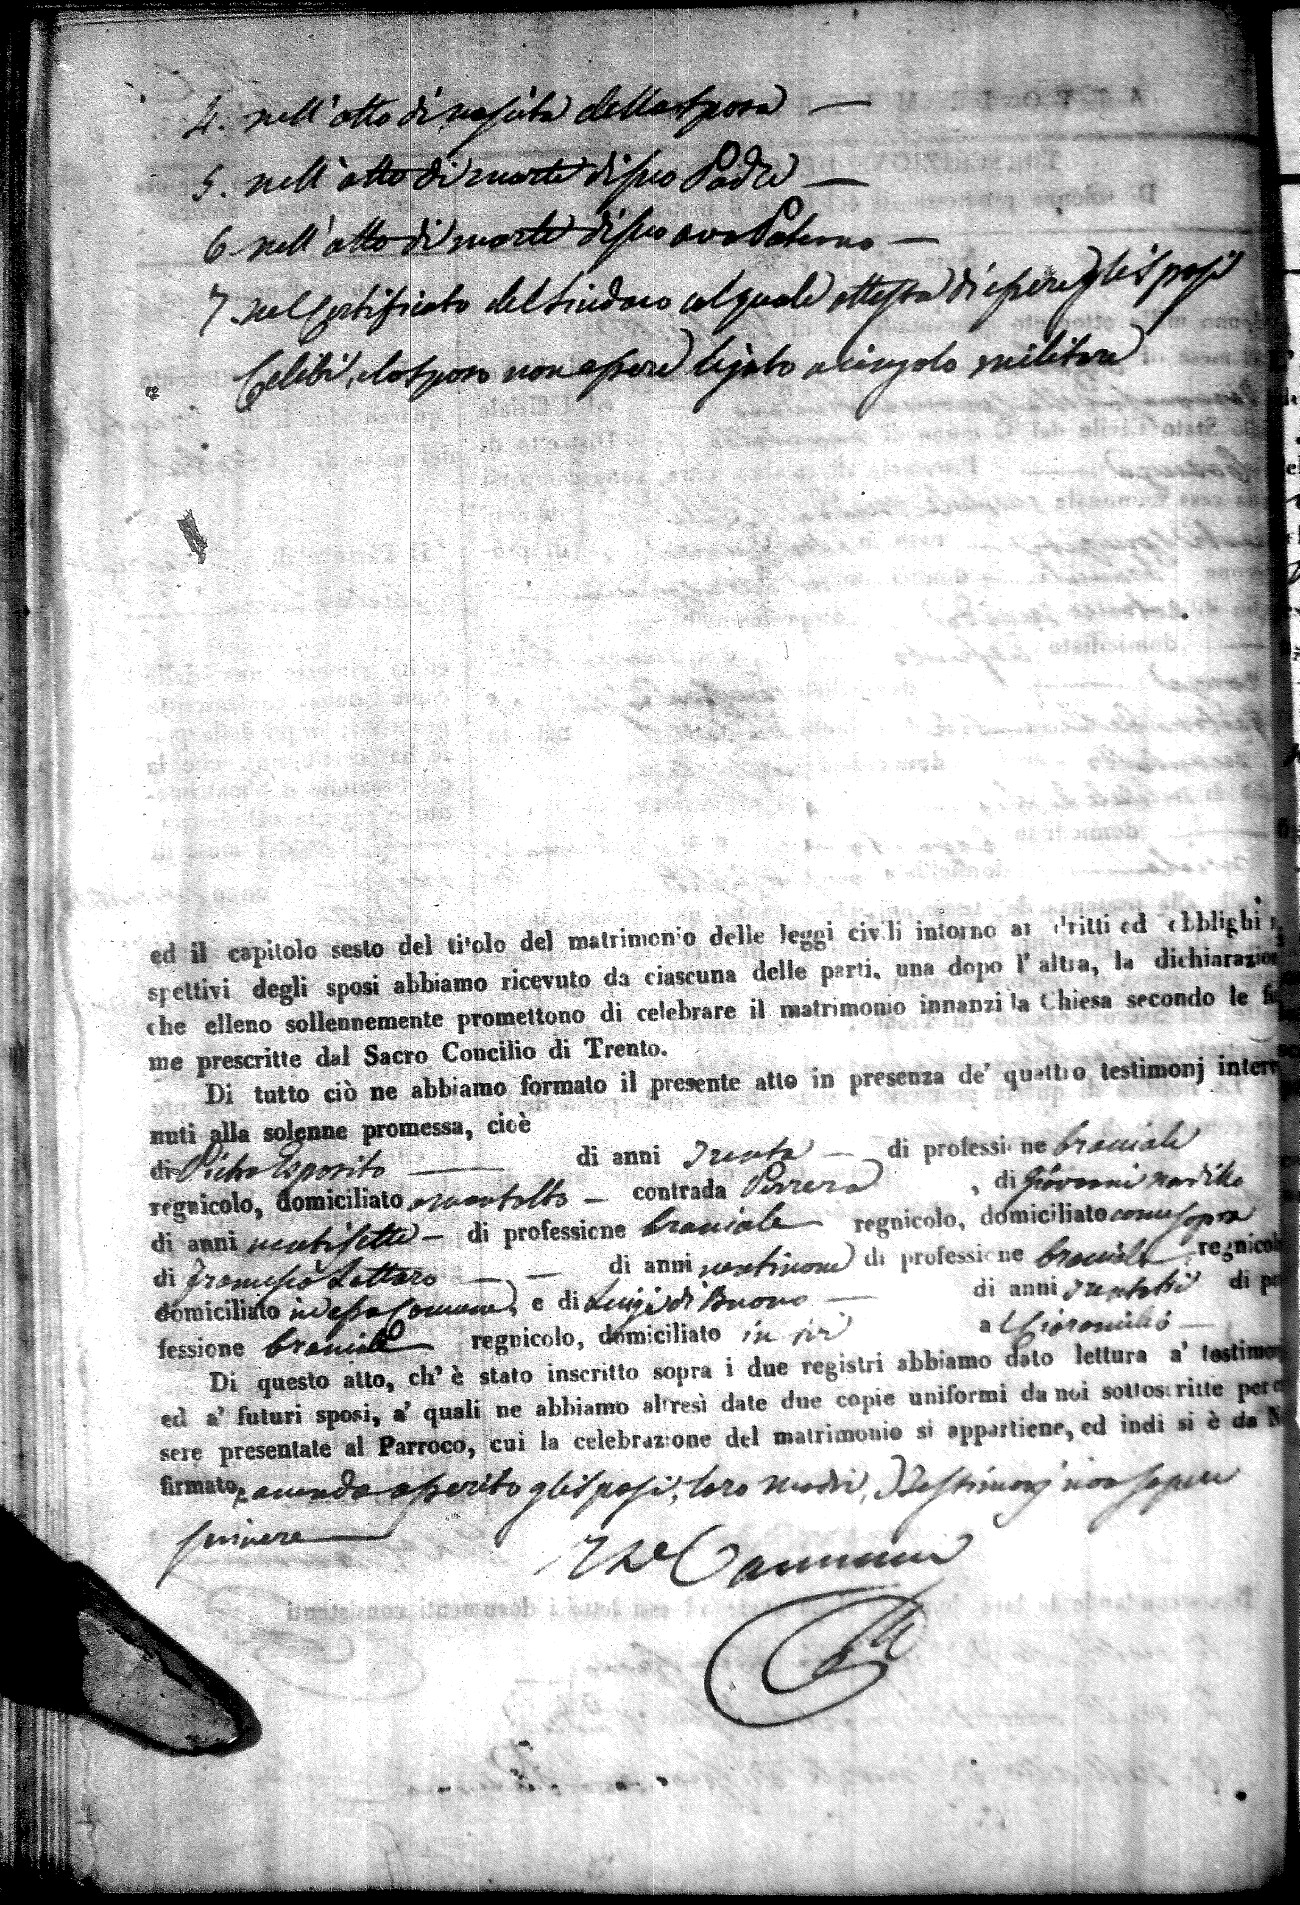 4. nell'atto di nascita della sposa —
5. nell'atto di morte di suo Padre —
6. nell'atto di morte di suo avo Paterno —
7. nel certificato del Sindaco col quale attesta di essere gli sposi
celibi, e lo sposo non essere legato a cingolo militare
ed il capitolo sesto del titolo del matrimonio delle leggi civili intorno ai dritti ed obblighi
spettivi degli sposi abbiamo ricevuto da ciascuna delle parti, una dopo l'altra, la dichiarazion
che elleno sollennemente promettono di celebrare il matrimonio innanzi la Chiesa secondo le
me prescritte dal Sacro Concilio di Trento.
Di tutto ciò ne abbiamo formato il presente atto in presenza de' quattro testimonj interv
nuti alla solenne promessa, cioè
di Pietro Esposito — di anni Trenta — di professione bracciale
regnicolo, domiciliato — contrada , di Giovanni
di anni ventisette — di professione bracciale regnicolo, domiciliato come sopra
di Francesco Lattaro — di anni ventinove di professione bracciale regnicolo
domiciliato in essa Comune, e di Luigi di Buono — di anni di pro
fessione bracciale regnicolo, domiciliato in a
Di questo atto, ch' è stato inscritto sopra i due registri abbiamo dato lettura a' testimon
ed a' futuri sposi, a' quali ne abbiamo altresì date due copie uniformi da noi sottoscritte per es
sere presentate al Parroco, cui la celebrazione del matrimonio si appartiene, ed indi si è da N
firmato, avendo asserito gli sposi, loro madri, e testimonj non sapere
scrivere —